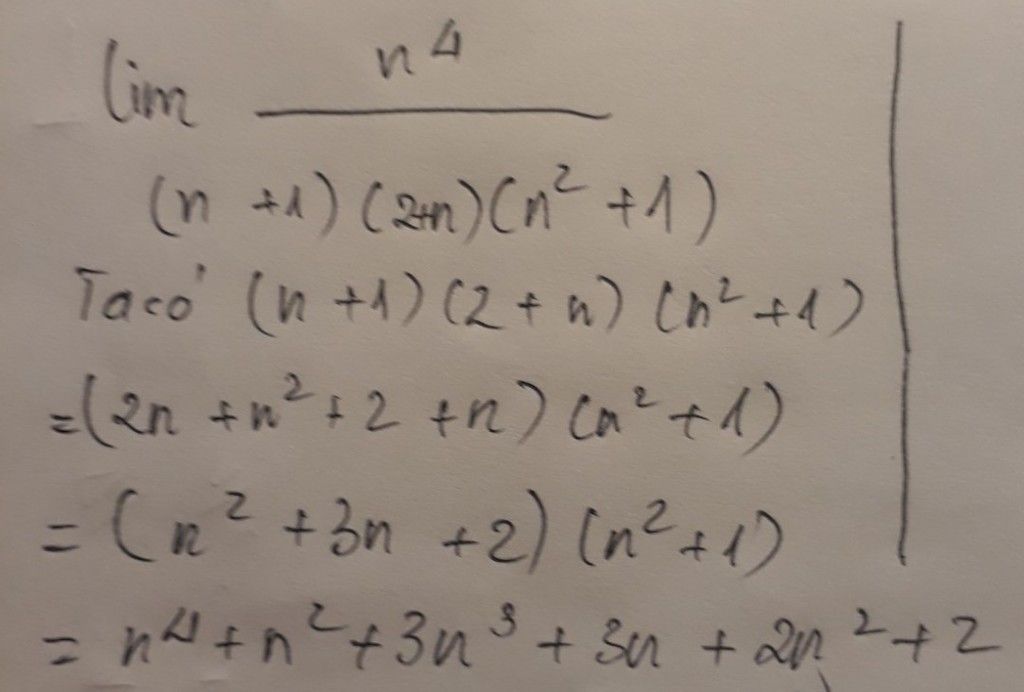 lim n⁴
(n +1)(2+n)(n² +1)
Ta có (n +1)(2 + n) (n² +1)
=(2n +n² +2 +n) (n² +1)
= (n² +3n +2) (n² +1)
= n⁴ + n² +3n³ + 3n + 2n² + 2